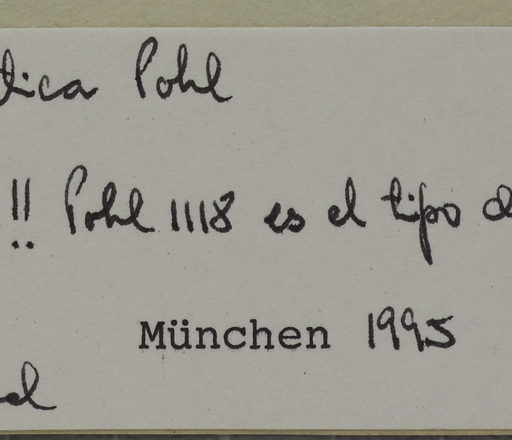 tica Pohl
!! Pohl 1118 es el tipo d
München 1995